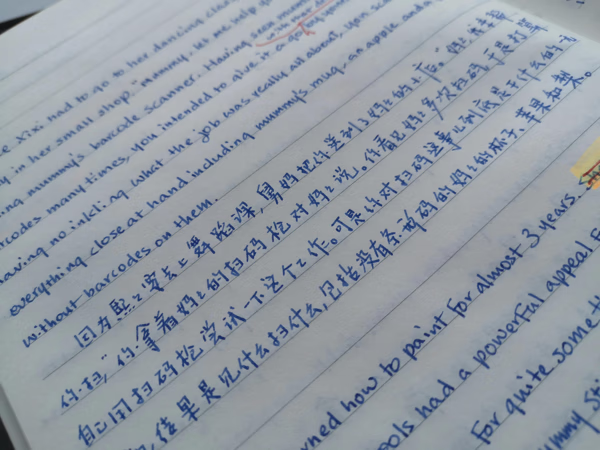 Xixi had to go to her dancing
in her small shop. "Mummy, let me help
mummy's barcode scanner. Having seen mummy
barcodes many times, you intended to give it a go
having no inkling what the job was really all about, you
everything close at hand including mummy's mug, an apple and a
without barcodes on them.
因为熙之要去上舞蹈课,舅妈把你送到了妈之的小店。"妈之,我来帮
你扫,"你拿着妈之的扫码枪对妈之说。你看见妈之多次扫码于是打算
自己用扫码枪尝试一下这个工作。可是你对扫码这事儿到底是干什么的一
,结果是见什么扫什么,包括没有条形码的妈之的杯子、苹果和梨。
how to paint for almost 3 years.
had a powerful appeal
For quite some
mummy